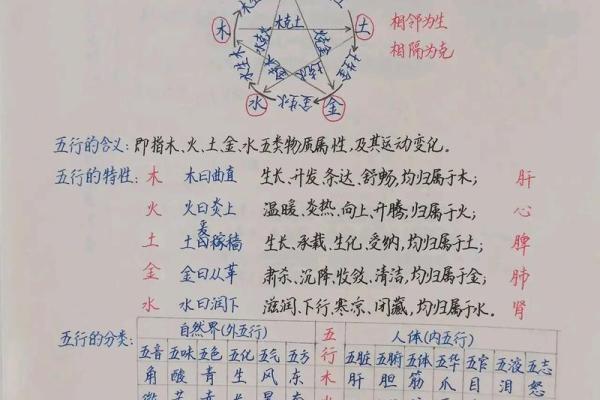 木克土
木
土
相邻为生
相隔为克
水生木
土生金
水
金生水
金
五行的含义:即指木、火、土、金、水五类物质属性,及其运动变化。
五行的特性:木 木曰曲直 生长、升发、条达、舒畅,均归属于木; 肝
火 火曰炎上 温暖、炎热、向上、升腾,归属于火; 心
土 土爰稼穑 生长、承载、生化、受纳,均归属于土; 脾
金 金曰从革 肃杀、沉降、收敛、清洁,均归属于金; 肺
水 水曰润下 滋润、下行、寒凉、闭藏,均归属于水。 肾
五行的分类: 自然界(外五行) 五行 人体(内五行)
五音 五味 五色 五化 五气 五方 五脏 五腑 五体 五华 五窍 五液 五志
角 酸 青 生 风 东 木 肝 胆 筋 爪 目 泪 怒